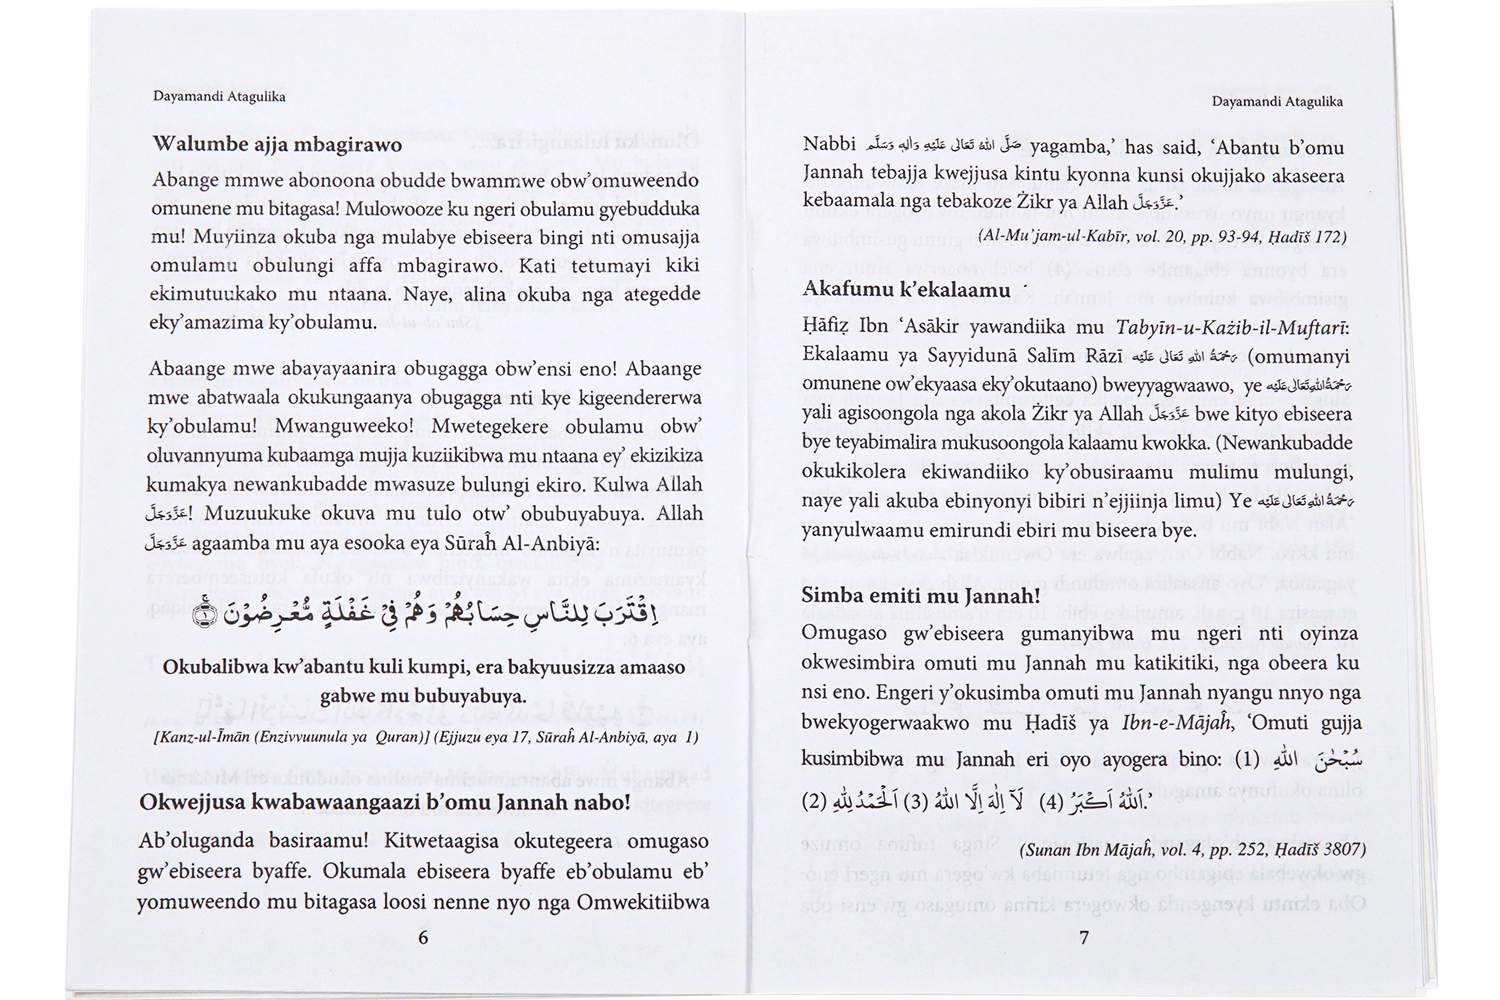 Dayamandi Atagulika
Walumbe ajja mbagirawo
Abange mmwe abonoona obudde bwammwe obw’omuweendo
omunene mu bitagasa! Mulowooze ku ngeri obulamu gyebudduka
mu! Muyiinza okuba nga mulabye ebiseera bingi nti omusajja
omulamu obulungi affa mbagirawo. Kati tetumayi kiki
ekimutuukako mu ntaana. Naye, alina okuba nga ategedde
eky’amazima ky’obulamu.
Abaange mwe abayayaanira obugagga obw’ensi eno! Abaange
mwe abatwaala okukungaanya obugagga nti kye kigeendererwa
ky’obulamu! Mwanguweeko! Mwetegekere obulamu obw’
oluvannyuma kubaamga mujja kuziikibwa mu ntaana ey’ ekizikiza
kumakya newankubadde mwasuze bulungi ekiro. Kulwa Allah
عَزَّوَجَلَّ! Muzuukuke okuva mu tulo otw’ obubuyabuya. Allah
عَزَّوَجَلَّ agaamba mu aya esooka eya Sūraĥ Al-Anbiyā:
اِقْتَرَبَ لِلنَّاسِ حِسَابُهُمْ وَهُمْ فِيْ غَفْلَةٍ مُّعْرِضُوْنَ
Okubalibwa kw’abantu kuli kumpi, era bakyuusizza amaaso
gabwe mu bubuyabuya.
[Kanz-ul-Īmān (Enzivvuunula ya Quran)] (Ejjuzu eya 17, Sūraĥ Al-Anbiyā, aya 1)
Okwejjusa kwabawaangaazi b’omu Jannah nabo!
Ab’oluganda basiraamu! Kitwetaagisa okutegeera omugaso
gw’ebiseera byaffe. Okumala ebiseera byaffe eb’obulamu eb’
yomuweendo mu bitagasa loosi nenne nyo nga Omwekitiibwa
6
Dayamandi Atagulika
Nabbi صَلَّى اللهُ تَعَالٰى عَلَيْهِ وَاٰلِهٖ وَسَلَّم yagamba,’ has said, ‘Abantu b’omu
Jannah tebajja kwejjusa kintu kyonna kunsi okujjako akaseera
kebaamala nga tebakoze Żikr ya Allah عَزَّوَجَلَّ.’
(Al-Mu’jam-ul-Kabīr, vol. 20, pp. 93-94, Ḥadīš 172)
Akafumu k’ekalaamu
Ḥāfiẓ Ibn ‘Asākir yawandiika mu Tabyīn-u-Każib-il-Muftarī:
Ekalaamu ya Sayyidunā Salīm Rāzī رَحْمَةُ اللهِ تَعَالٰى عَلَيْهِ (omumanyi
omunene ow’ekyaasa eky’okutaano) bweyyagwaawo, ye رَحْمَةُ اللهِ تَعَالٰى عَلَيْهِ
yali agisoongola nga akola Żikr ya Allah عَزَّوَجَلَّ bwe kityo ebiseera
bye teyabimalira mukusoongola kalaamu kwokka. (Newankubadde
okukikolera ekiwandiiko ky’obusiraamu mulimu mulungi,
naye yali akuba ebinyonyi bibiri n’ejjiinja limu) Ye رَحْمَةُ اللهِ تَعَالٰى عَلَيْهِ
yanyulwaamu emirundi ebiri mu biseera bye.
Simba emiti mu Jannah!
Omugaso gw’ebiseera gumanyibwa mu ngeri nti oyinza
okwesimbira omuti mu Jannah mu katikitiki, nga obeera ku
nsi eno. Engeri y’okusimba omuti mu Jannah nyangu nnyo nga
bwekyogerwaakwo mu Ḥadīš ya Ibn-e-Mājaĥ, ‘Omuti gujja
kusimbibwa mu Jannah eri oyo ayogera bino: (1) سُبْحٰنَ اللهِ
(2) اَلْحَمْدُ لِلّٰهِ (3) لَآ اِلٰهَ اِلَّا اللهُ (4) اَللهُ اَكْبَرُ.’
(Sunan Ibn Mājaĥ, vol. 4, pp. 252, Ḥadīš 3807)
7